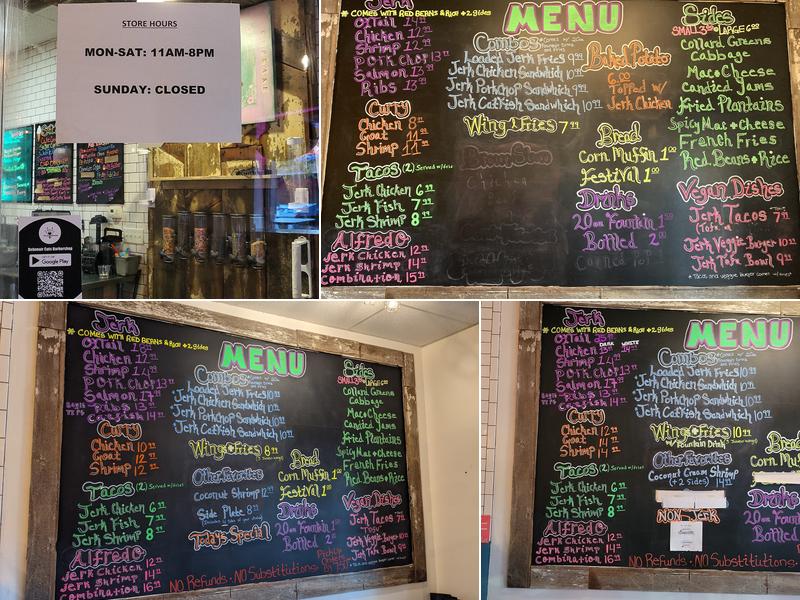 STORE HOURS
MON-SAT: 11AM-8PM
SUNDAY: CLOSED
Google Play
Jerk
* COMES WITH RED BEANS & RICE + 2 sides
OXTail 14
Chicken 12
Shrimp 12
Pork Chop 13
Salmon 13
Ribs 13
Curry
Chicken 8
Goat 11
Shrimp 11
Tacos (2) Served w/fries
Jerk Chicken 6
Jerk Fish 7
Jerk Shrimp 8
Alfredo
Jerk Chicken 12
Jerk Shrimp 14
Combination 15
MENU
Combos
Loaded Jerk Fries 9
Jerk Chicken Sandwhich 10
Jerk Porkchop Sandwhich 9
Jerk Catfish Sandwhich 10
Wing & Fries 7
Baked Potato
6.00
Topped w/
Jerk Chicken
Bread
Corn Muffin 1
Festival 1
Drinks
20oz Fountain 1
Bottled 2
Sides
SMALL 3 LARGE 6
Collard Greens
Cabbage
Mac & Cheese
Candied Yams
Fried Plantains
Spicy Mac & Cheese
French Fries
Red Beans & Rice
Vegan Dishes
Jerk Tacos 7
(Tofu)
Jerk Veggie-Burger 10
Jerk Tofu Bowl 9
Jerk
* COMES WITH RED BEANS & Rice + 2 sides
OXTail
Chicken 12
Shrimp 14
Pork Chop 13
Salmon 17
Ribs 13
Catfish 14
Curry
Chicken 10
Goat 12
Shrimp 12
Tacos (2) Served w/fries
Jerk Chicken 6
Jerk Fish 7
Jerk Shrimp 8
Alfredo
Jerk Chicken 12
Jerk Shrimp 14
Combination 16
MENU
Combos
Loaded Jerk Fries 10
Jerk Chicken Sandwhich 10
Jerk Porkchop Sandwhich 10
Jerk Catfish Sandwhich 10
Wings & Fries 8
Other Favorites
Coconut Shrimp 12
Side Plate 8
Today's Special
Bread
Corn Muffin 1
Festival 1
Drinks
20oz Fountain 1
Bottled 2
Sides
SMALL 3 LARGE 6
Collard Greens
Cabbage
Mac & Cheese
Candied Yams
Fried Plantains
Spicy Mac & Cheese
French Fries
Red Beans & Rice
Vegan Dishes
Jerk Tacos 7
Tofu
Jerk Veggie-Burger 10
Jerk Tofu Bowl 9
NO Refunds · NO Substitutions
Jerk
* COMES WITH RED BEANS & Rice + 2 sides
OXTail
DARK WHITE
Chicken 13 14
Shrimp 14
Pork Chop 13
Salmon 17
Ribs 13
Catfish 14
Curry
Chicken 12
Goat 14
Shrimp 14
Tacos (2) Served w/fries
Jerk Chicken 6
Jerk Fish 7
Jerk Shrimp 8
Alfredo
Jerk Chicken 12
Jerk Shrimp 14
Combination 16
MENU
Combos
Loaded Jerk Fries 10
Jerk Chicken Sandwhich 10
Jerk Porkchop Sandwhich 10
Jerk Catfish Sandwhich 10
Wings & Fries 10
w/ Fountain Drink
Other Favorites
Coconut Cream Shrimp
(+2 sides) 14
NON JERK
NO Refunds · NO Substitutions